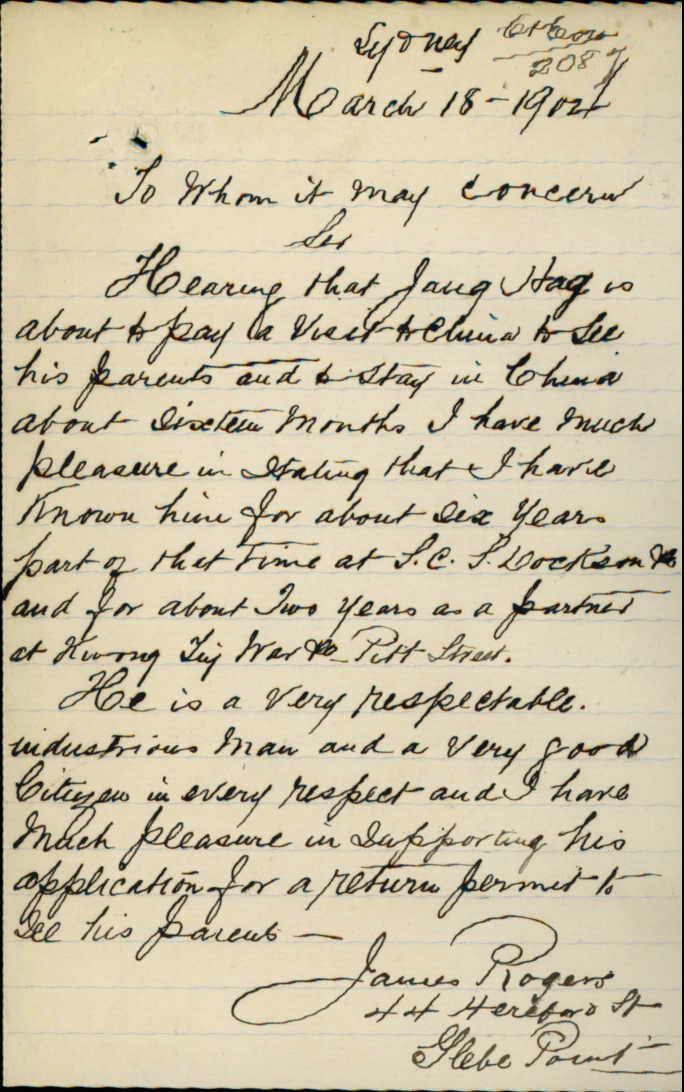 Sydney
208
March 18 - 1904
To Whom it may concern
Sir
Hearing that Jang Hag is
about to pay a Visit to China to See
his parents and to Stay in China
about Sixteen Months I have Much
pleasure in Stating that I have
Known him for about Six Years
part of that Time at S. C. S. Dockson & Co
and for about Two years as a partner
at Kwong War & Co - Pitt Street.
He is a very respectable.
industrious Man and a very good
Citizen in every respect and I have
Much pleasure in Supporting his
application for a return permit to
See his parents —
James Rogers
44 Hereford St
Glebe Point -